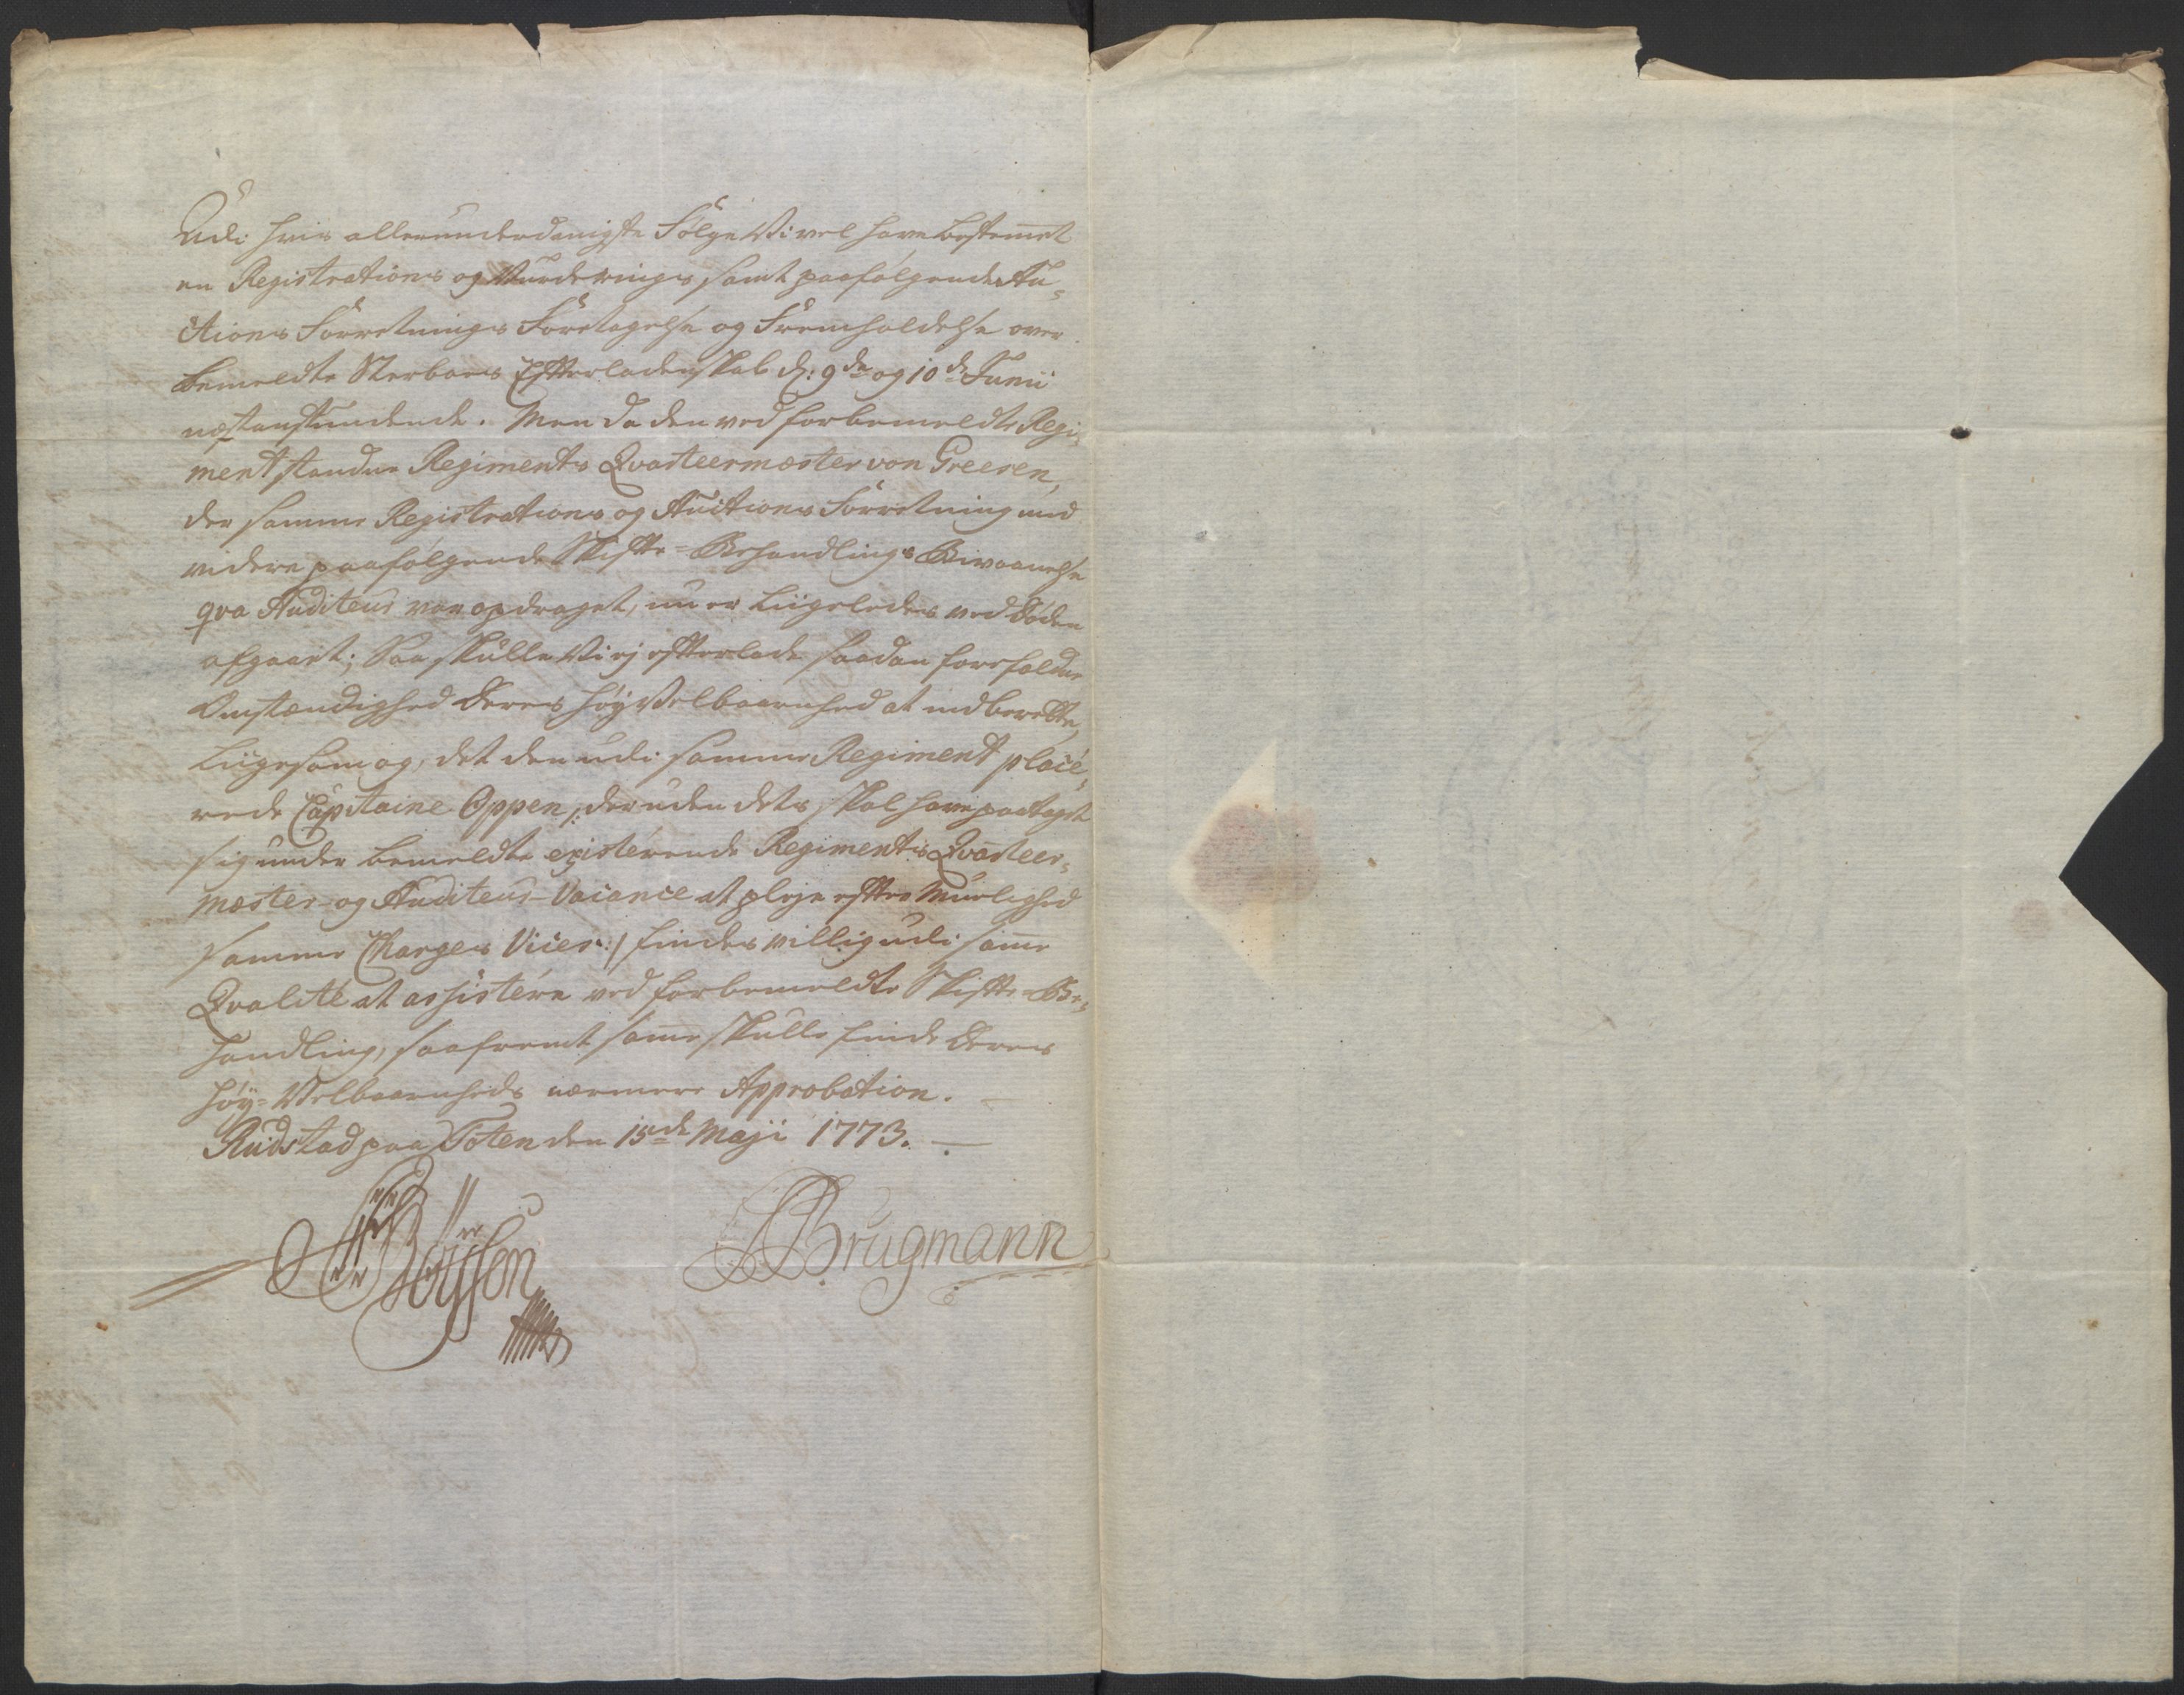 Udi hvis allerunderdanigste Følge Vi vel have bestemet
en Registrations og Vurderings samt paafølgende Au=
ctions Forretnings Foretagelse og Fremholdelse over
bemeldte Sterboes Efterladenskab d: 9de og 10de Junii
næstanstundende. Men da den ved forbemeldte Regi=
ment standne Regiments Qvarteermæster von Greesen,
der samme Registrations og Auctions Forretning med
videre paafølgende Skifte=Behandlings Bivaanelse
qva Auditeur var opdraget, nu er liigeledes ved Døden
afgaaet; Saa skulle Vi ej efterlade saadan forefaldne
Omstændighed Deres HøyVelbaarenhed at indberette,
Liigesom og, det den udi samme Regiment placé=
rede Capitaine Oppen /: der uden dets skal have paataget
sig under bemeldte existérende Regiments Qvarteer=
mæster- og Auditeur-Vacance at pleje efter Muelighed
samme Charges Vices :/ findes villig udi same
Qvalité at assistére ved forbemeldte Skifte=Be=
handling, saafremt same skulle finde Deres
Høy=Velbaarenheds nærmere Approbation.
Rudstad paa Toten den 15de Maji 1773.
Böyesen ABrugmann